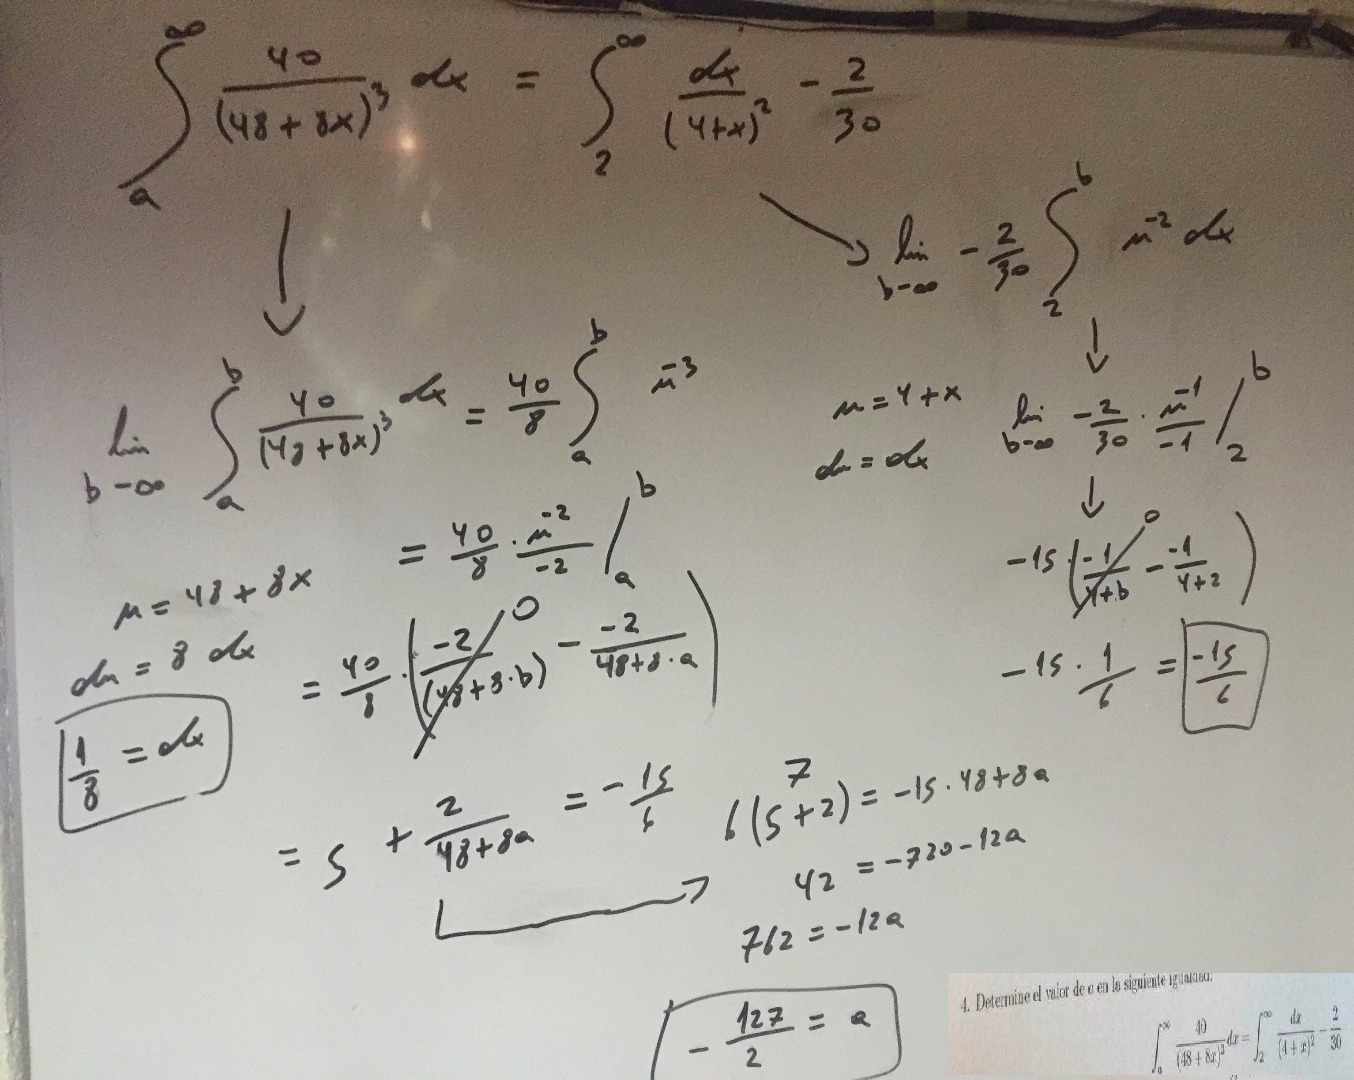 ∫_a^∞ 40/(48+8x)³ dx = ∫_2^∞ dx/(4+x)² - 2/30
lim b→∞ - 2/30 ∫_2^b u⁻² dx
lim b→∞ ∫_a^b 40/(48+8x)³ dx = 40/8 ∫_a^b u⁻³
u = 4+x
du = dx
lim b→∞ - 2/30 · u⁻¹/-1 /_2^b
= 40/8 · u⁻²/-2 /_a^b
-15 · (-1/4+b 0 - -1/4+2)
u = 48+8x
du = 8 dx
1/8 = dx
= 40/8 · (-2/(48+8·b) 0 - -2/48+8·a)
-15 · 1/6 = -15/6
= 5 + 2/48+8a = -15/6
7
6(5+2) = -15·48+8a
42 = -720-12a
762 = -12a
- 127/2 = a
4. Determine el valor de a en la siguiente igualdad.
∫_a^∞ 40/(48+8x)³ dx = ∫_2^∞ dx/(4+x)² - 2/30